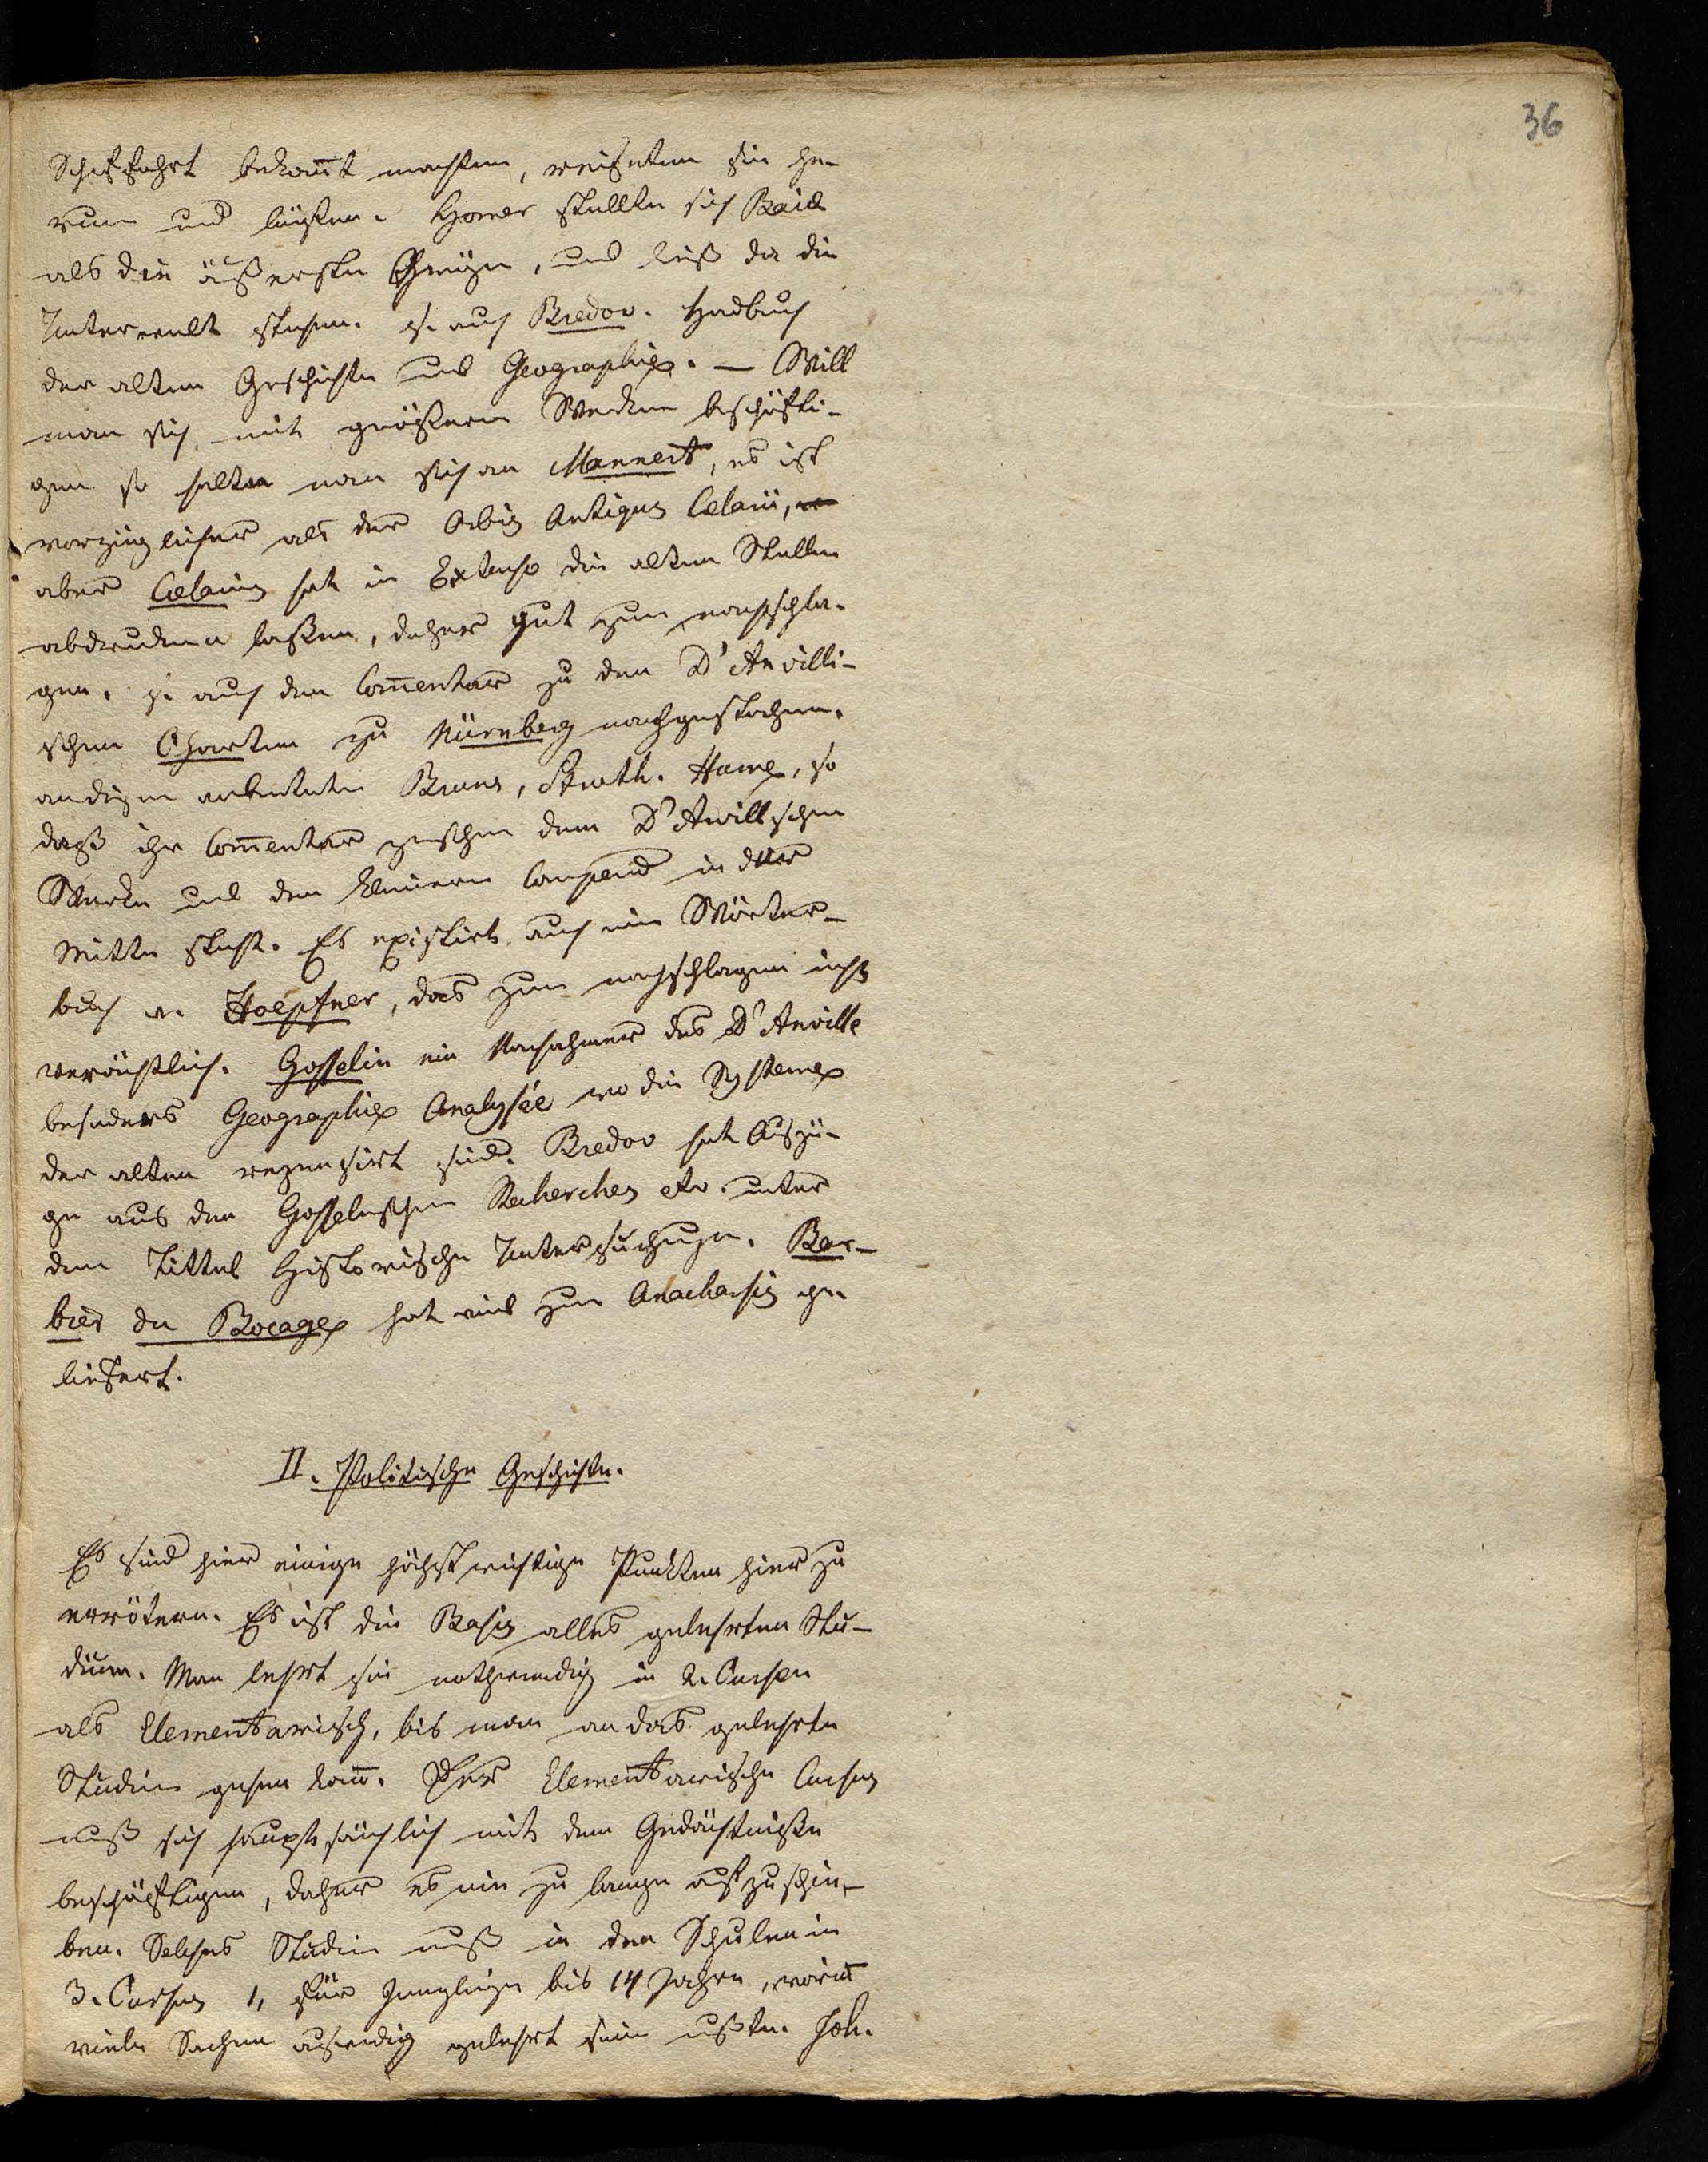 36
Schiffahrt bekañt machten, reiseten sie he-
rum und logen. Homer stellte sich Baiæ
als die äußerste Gränze, und ließ da die
Unterwelt stehen. s. auch Bredov. Hadbuch
der alten Geschichte und Geographie. — Will
man sich mit größern Werken beschäfti-
gen so halte man sich an Mannert, es ist
vorzüglicher als der Orbis Antiquus Celarii,
aber Celarius hat in Extenso die alten Stellen
abdrucken laßen, daher gut zum nachschla-
gen. s. auch den Com̄entar zu den D'Anvilli-
schen Charten zu Nürnberg nachgestochen.
an diesen arbeiteten Bruns, Stroth. Hame, so
daß ihr Com̄entar zwischen dem D'Anvillschen
Werke und dem kleinern Compend in der
Mitte steht. Es existirt auch ein Wörter-
buch v. Hoepfner, das zum nachschlagen nicht
verächtlich. Gosselin ein Nachahmer des D'Anville
besonders Geographie Analysée wo die Systeme
der alten rezensirt sind. Bredov hat Auszü-
ge aus den Gosselinschen Recherches etc. unter
dem Tittel Historische Untersuchungen. Bar-
bier du Bocage hat viel zum Anacharsis ge
liefert.
II. Politische Geschichte.
Es sind hier einige höchst wichtige Punkten hier zu
erörtern. Es ist die Basis alles gelehrten Stu-
dium. Man lehrt sie nothwendig in 2. Cursen
als Elementarisch, bis man an das gelehrte
Studium gehen kañ. Der Elementarische Cursus
muß sich hauptsächlich mit dem Gedächtniße
beschäftigen, daher es nie zu lange aufzuschie-
ben. Solches Studium muß in den Schulen in
3. Cursus 1, für Jünglinge bis 14 Jahren, woriñ
viele Sachen auswendig gelehrt sein mußten. Joh.